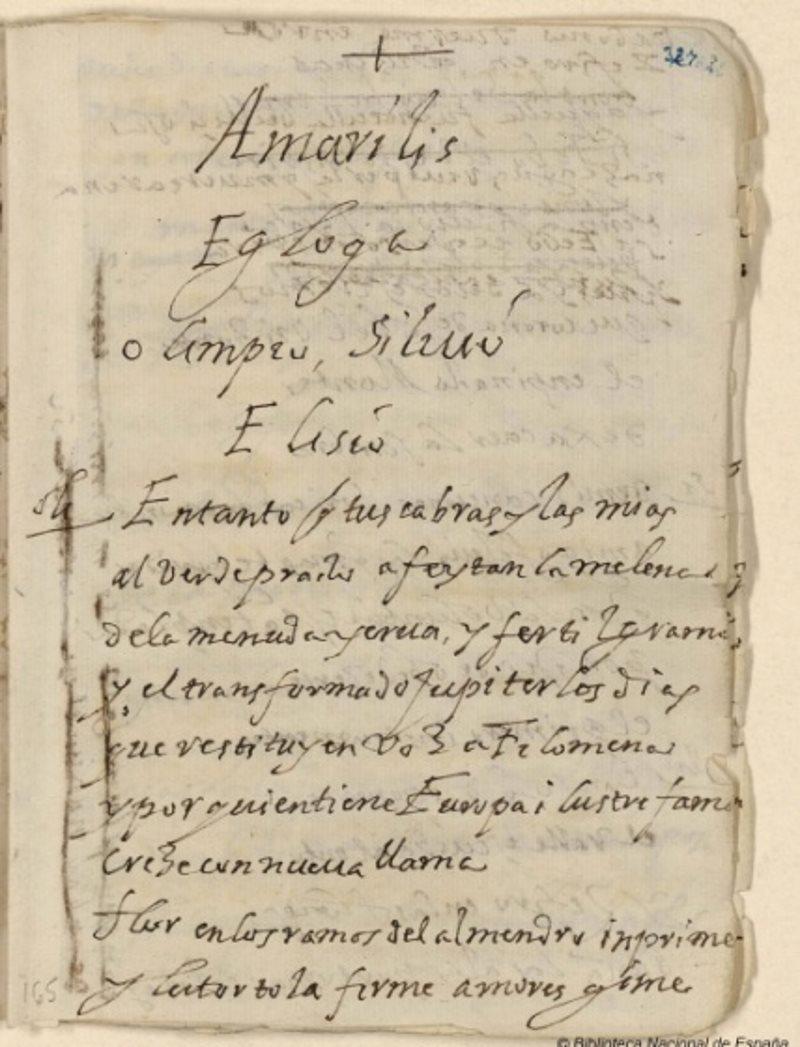 Amarilis
Egloga
olimpio, Siluio
Elisio
Entanto q tus cabras y las mias
al verde prado afeytan la melena
de la menuda yerua, y fertil grama,
y el transformado Jupiter los dias
que restituyen voz a Filomena
y por quien tiene Europa ilustre fama
creze con nueua llama
flor en los ramos del almendro inprime
y la tortola firme amores gime
165
© Biblioteca Nacional de España